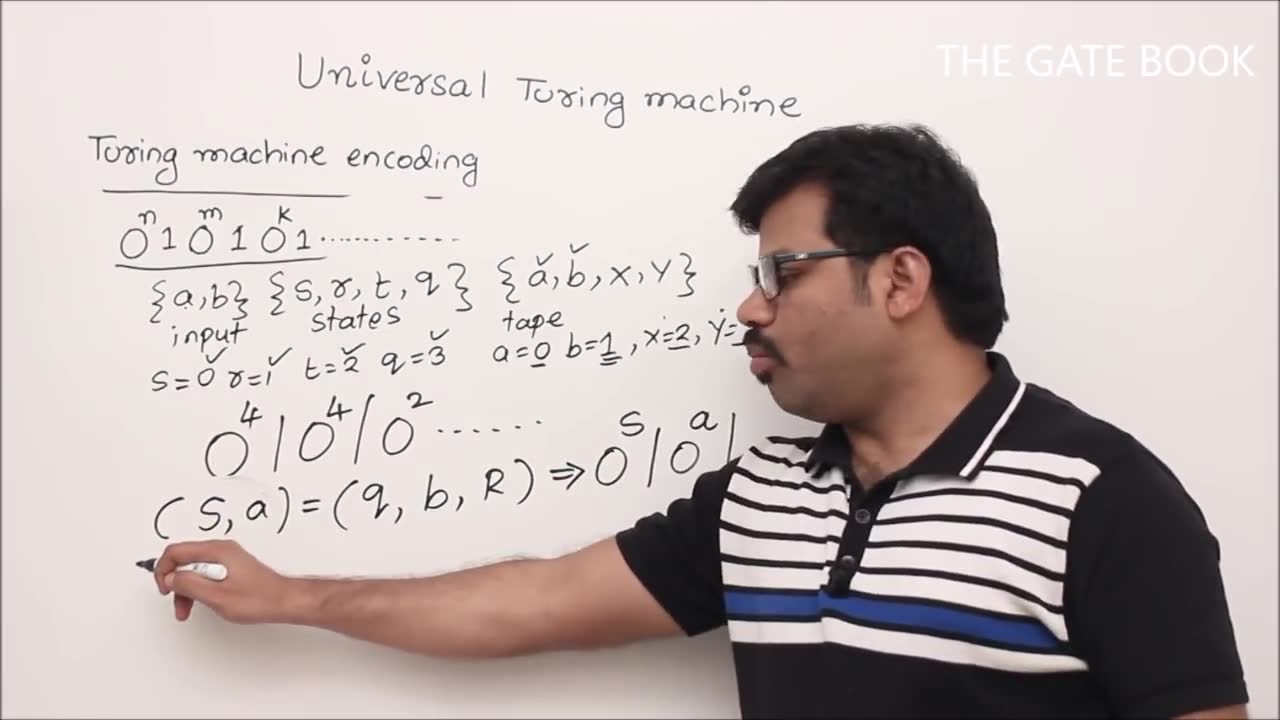 THE GATE BOOK
Universal Turing machine
Turing machine encoding
0ⁿ10ᵐ10ᵏ1...........
{a,b} {s,r,t,q} {a,b,X,Y}
input states tape
s=0 r=1 t=2 q=3 a=0 b=1, X=2, Y=
0⁴|0⁴|0²......
(s,a)=(q,b,R)⇒0ˢ|0ᵃ|